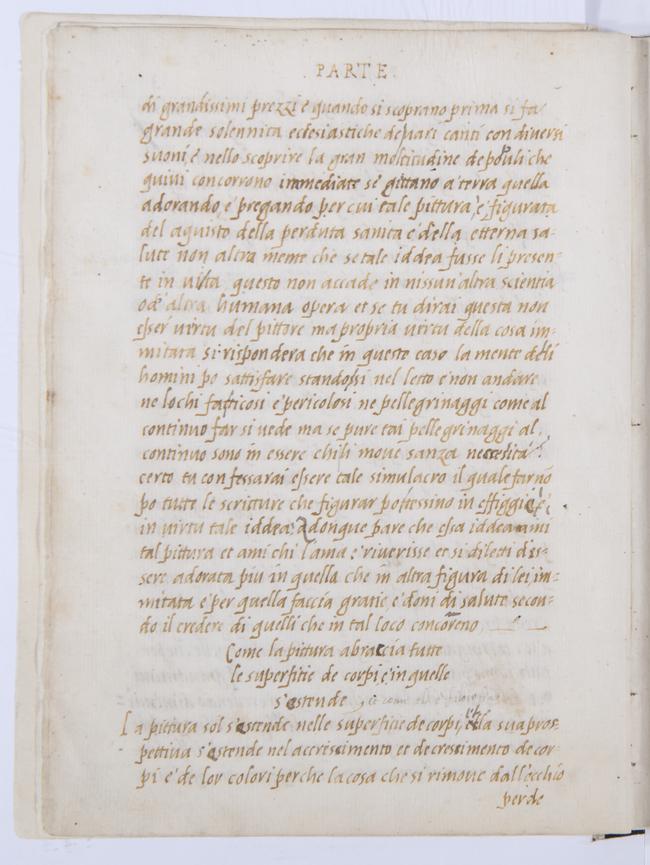 PARTE
di grandissimi prezzi e quando si scoprano prima si fa
grande solennita eclesiastiche de vari canti con diversi
suoni, e nello scoprire la gran moltitudine de popoli che
quivi concorrono immediate se gittano a terra quella
adorando, e pregando per cui tale pittura, e, figurata
del aquisto della perduta sanita e della etterna sa-
lute non altra mente che se tale iddea fusse li presen-
te in vista questo non accade in nissun'altra scientia
od' altra humana opera et se tu dirai questa non
esser virtu del pittore ma propria virtu della cosa im-
mitata si rispondera che in questo caso la mente deli
homini po sattisfare standosi nel letto e non andare
ne lochi faticosi e pericolosi ne pellegrinaggi come al
continuo far si vede ma se pure tai pellegrinaggi al
continuo sono in essere chi li move sanza necessita?
certo tu confessarai essere tale simulacro il quale far no
po tutte le scritture che figurar potessino in effiggie e'
in virtu tale iddea: Adonque pare che essa iddea ami
tal pittura et ami chi l'ama e' riverisse et si diletti d'es-
sere adorata piu in quella che in altra figura di lei im-
mitata e per quella faccia gratie e' doni di salute secon-
do il credere di quelli che in tal loco concorreno
Come la pittura abraccia tutte
le superfitie de corpi e' in quelle
s'estende
La pittura sol s'estende nelle superfitie de corpi, et la sua pros-
pettiva s'estende nel accrescimento et decrescimento de cor-
pi e' de lor colori perche la cosa che si rimove dall'occhio
perde